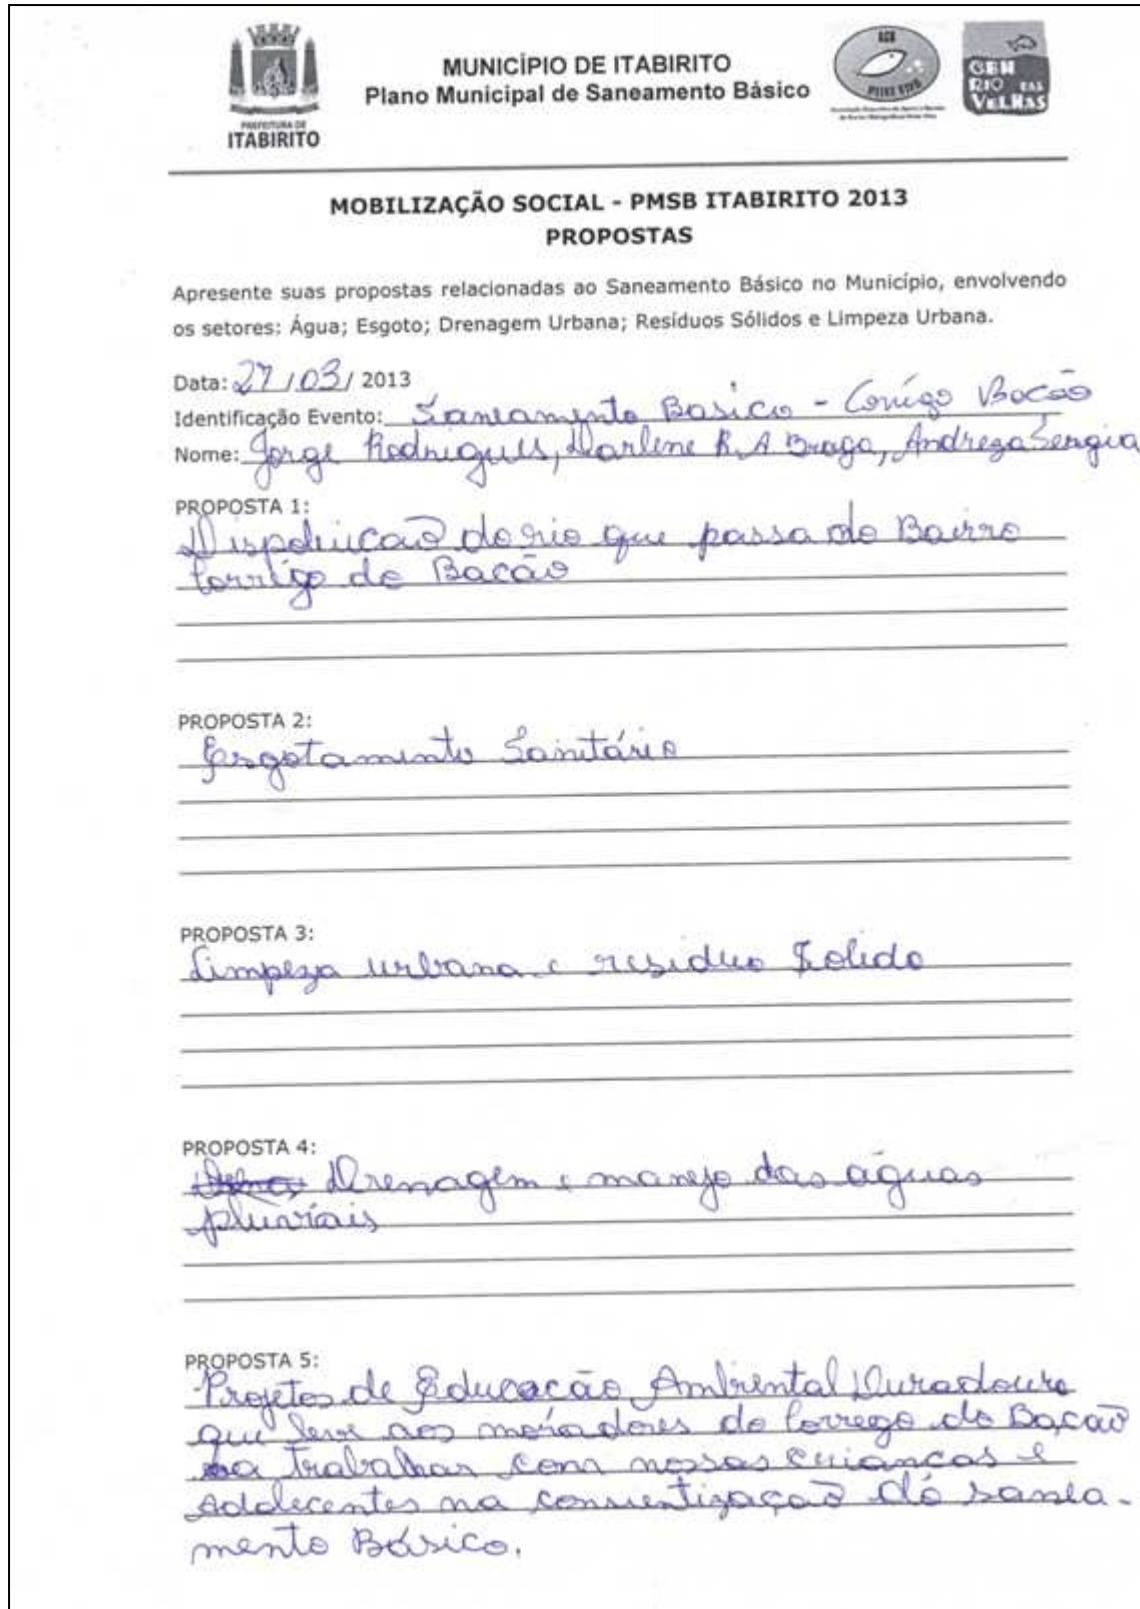 MUNICÍPIO DE ITABIRITO
Plano Municipal de Saneamento Básico
PREFEITURA DE
ITABIRITO
AGB
PEIXE VIVO
CBH
RIO DAS
VELHAS
MOBILIZAÇÃO SOCIAL - PMSB ITABIRITO 2013
PROPOSTAS
Apresente suas propostas relacionadas ao Saneamento Básico no Município, envolvendo
os setores: Água; Esgoto; Drenagem Urbana; Resíduos Sólidos e Limpeza Urbana.
Data: 27/03/ 2013
Identificação Evento: Saneamento Basico - Corrigo Bacão
Nome: Jorge Rodrigues, Darlene R. A Braga, Andreza Sergia
PROPOSTA 1:
Dispoluicão do rio que passa do Bairro
Corrigo do Bacão
PROPOSTA 2:
Esgotamento Sanitário
PROPOSTA 3:
Limpeza urbana e residuo Solido
PROPOSTA 4:
Drenagem e manejo das águas
pluviais
PROPOSTA 5:
Projetos de Educacão Ambiental Duradouro
que leve aos moradores do Corrego do Bacão
a Trabalhar com nossas crianças e
adolecentes na consientização do sanea-
mento Básico.